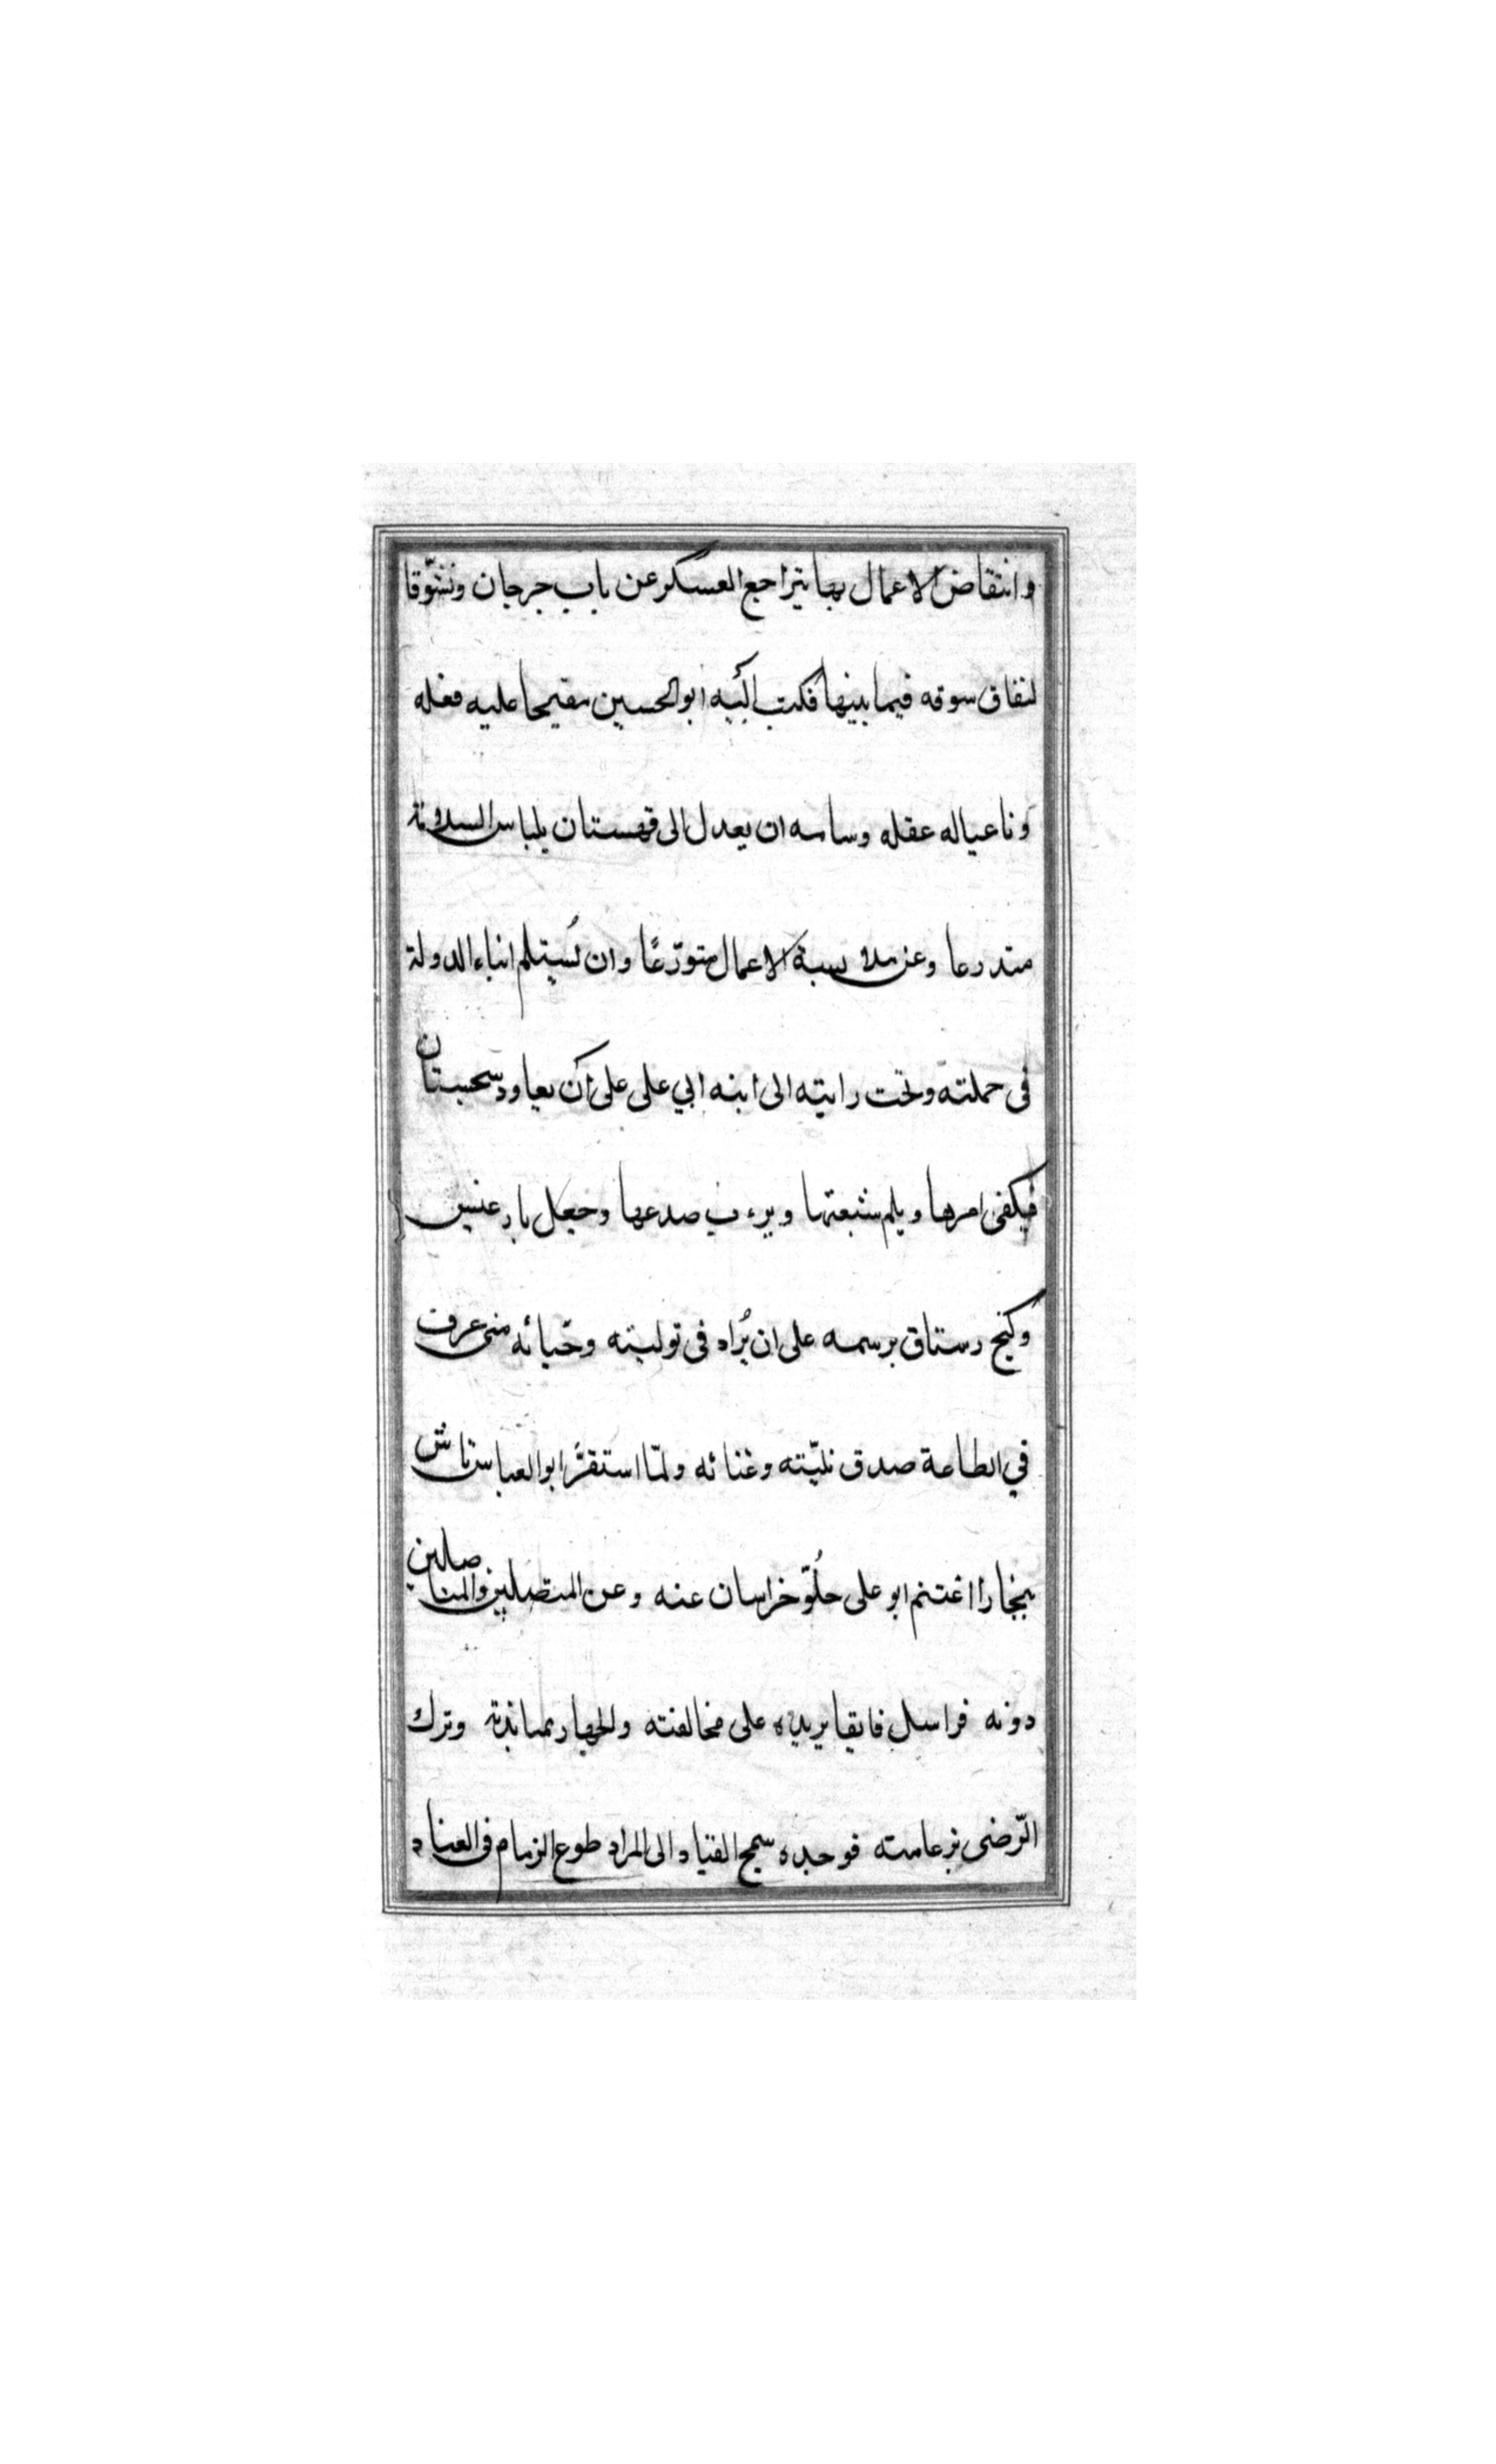 وانتقاض الاعمال بها بتراجع العسكر عن باب جرجان وتشوّقا
لنفاق سوقه فيما بينها فكتب اليه ابو الحسين مقبحا عليه فعله
وناعيا له عقله وسامه ان يعدل الى قهستان بلباس السلامة
متدرعا وعن ملابسة الاعمال متورّعًا وان يُسلم ابناء الدولة
فى جملته وتحت رايته الى ابنه ابي على على ان يعاود سجستان
فيكفى امرها ويلم شعثها ويرءب صدعها وجعل بادغيس
وكنج رستاق برسمه على ان يُزاد فى توليته وحبائه متى عرف
في الطاعة صدق نيّته وغنائه ولمّا استقرَّ ابو العباس تاش
ببخارا اغتنم ابو على خُلُوّ خراسان عنه وعن المتصلين والمناصلين
دونه فراسل فايقا يريده على مخالفته والجهار بمنابذته وترك
الرّضى بزعامته فوجده سمح القياد الى المراد طوع الزمام فى العناد